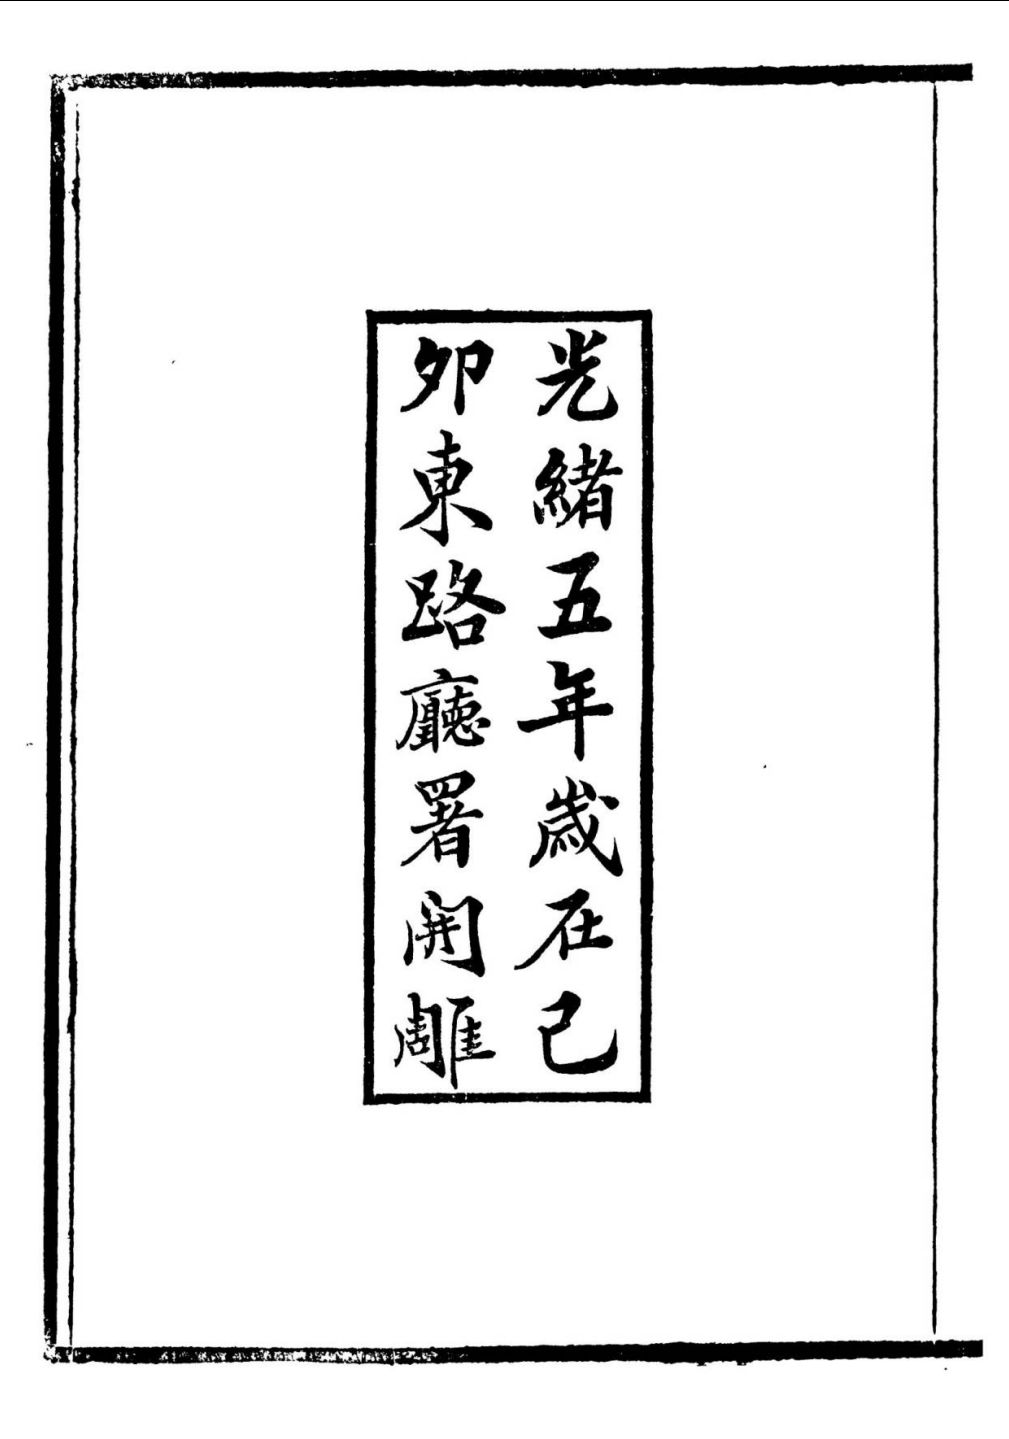 光緒五年歲在己
卯東路廳署開雕